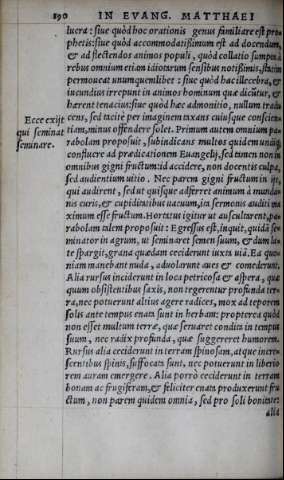 190 IN EVANG. MATTHAEI
lucra: siue quòd hoc orationis genus familiare est pro-
phetis: siue quòd accommodatißimum est ad docendum,
& ad flectendos animos populi, quòd collatio sumpta à
rebus omnium etiam idiotarum sensibus notißimis, statim
permoueat unumquemlibet: siue quòd hac illecebra, &
iucundius irrepunt in animos hominum quæ dicūtur, &
hærent tenacius: siue quòd hæc admonitio, nullum tradu
Ecce exijt cens, sed tacitè per imaginem taxans cuiusque conscien-
qui seminat tiam, minus offendere solet. Primum autem omnium pa-
seminare. rabolam proposuit, subindicans multos quidem undiq;
confluere ad prædicationem Euangelij, sed tamen non in
omnibus gigni fructum: id accidere, non docentis culpa,
sed audientium uitio. Nec parem gigni fructum in ijs,
qui audirent, sed ut quisque adferret animum à munda-
nis curis, & cupiditatibus uacuum, ita sermonis auditi ma
ximum esse fructum. Hortatus igitur ut auscultarent, pa-
rabolam talem proposuit: Egressus est, inquit, quidā se-
minator in agrum, ut seminaret semen suum, & dum la-
te spargit, grana quædam ceciderunt iuxta uiā. Ea quo-
niam manebant nuda, aduolarunt aues & comederunt.
Alia rursus inciderunt in loca petricosa & aspera, quæ
quum obsistentibus saxis, non tegerentur profunda ter-
ra, nec potuerunt altius agere radices, mox ad teporem
solis ante tempus enata sunt in herbam: propterea quòd
non esset multum terræ, quæ seruaret condita in tempus
suum, nec radix profunda, quæ suggereret humorem.
Rursus alia ceciderunt in terram spinosam, atque incre-
scentibus spinis, suffocata sunt, nec potuerunt in liberio
rem auram emergere. Alia porrò ceciderunt in terram
bonam ac frugiferam, & feliciter enata produxerunt fru
ctum, non parem quidem omnia, sed pro soli bonitate:
alia